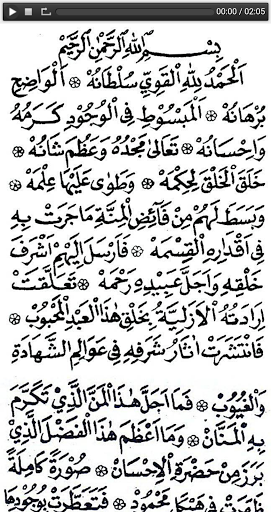 00:00 / 02:05
بِسْمِ اللهِ الرَّحْمٰنِ الرَّحِيْمِ
اَلْحَمْدُ لِلّٰهِ الْقَوِيِّ سُلْطَانُهُ ۞ اَلْوَاضِحِ
بُرْهَانُهُ ۞ اَلْمَبْسُوْطِ فِي الْوُجُوْدِ كَرَمُهُ
وَاِحْسَانُهُ ۞ تَعَالَى مَجْدُهُ وَعَظُمَ شَانُهُ ۞
خَلَقَ الْخَلْقَ لِحِكْمَهْ ۞ وَطَوَى عَلَيْهَا عِلْمَهْ ۞
وَبَسَطَ لَهُمْ مِنْ فَائِضِ الْمِنَّةِ مَاجَرَتْ بِهِ
فِي اَقْدَارِهِ الْقِسْمَهْ ۞ فَاَرْسَلَ اِلَيْهِمْ اَشْرَفَ
خَلْقِهِ وَاَجَلَّ عَبِيْدِهِ رَحْمَهْ ۞ تَعَلَّقَتْ
اِرَادَتُهُ الْاَزَلِيَّةُ بِخَلْقِ هٰذَا الْعَبْدِ الْمَحْبُوْبِ ۞
فَانْتَشَرَتْ اٰثَارُ شَرَفِهِ فِي عَوَالِمِ الشَّهَادَةِ
وَالْغُيُوْبِ ۞ فَمَا اَجَلَّ هٰذَا الْمَنَّ الَّذِيْ تَكَرَّمَ
بِهِ الْمَنَّانُ ۞ وَمَا اَعْظَمَ هٰذَا الْفَضْلَ الَّذِيْ
بَرَزَ مِنْ حَضْرَةِ الْاِحْسَانِ ۞ صُوْرَةً كَامِلَةً
ظَهَرَتْ فِي هَيْكَلٍ مَحْمُوْدٍ ۞ فَتَعَطَّرَتْ بِوُجُوْدِهَا